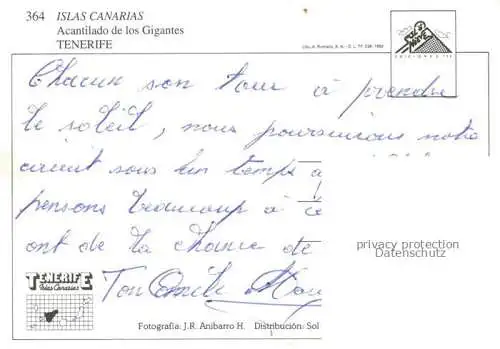 364 ISLAS CANARIAS
Acantilado de los Gigantes
TENERIFE
Lito. A. Romero, S. A. - D. L. TF.
EDICIONES
Chacun son tour à prendre
le soleil, nous poursuivons notre
circuit sous un temps
pensons beaucoup à
ont de la chance de
privacy protection
Datenschutz
TENERIFE
Islas Canarias
Ton
Fotografía: J.R. Anibarro H. Distribución: Sol